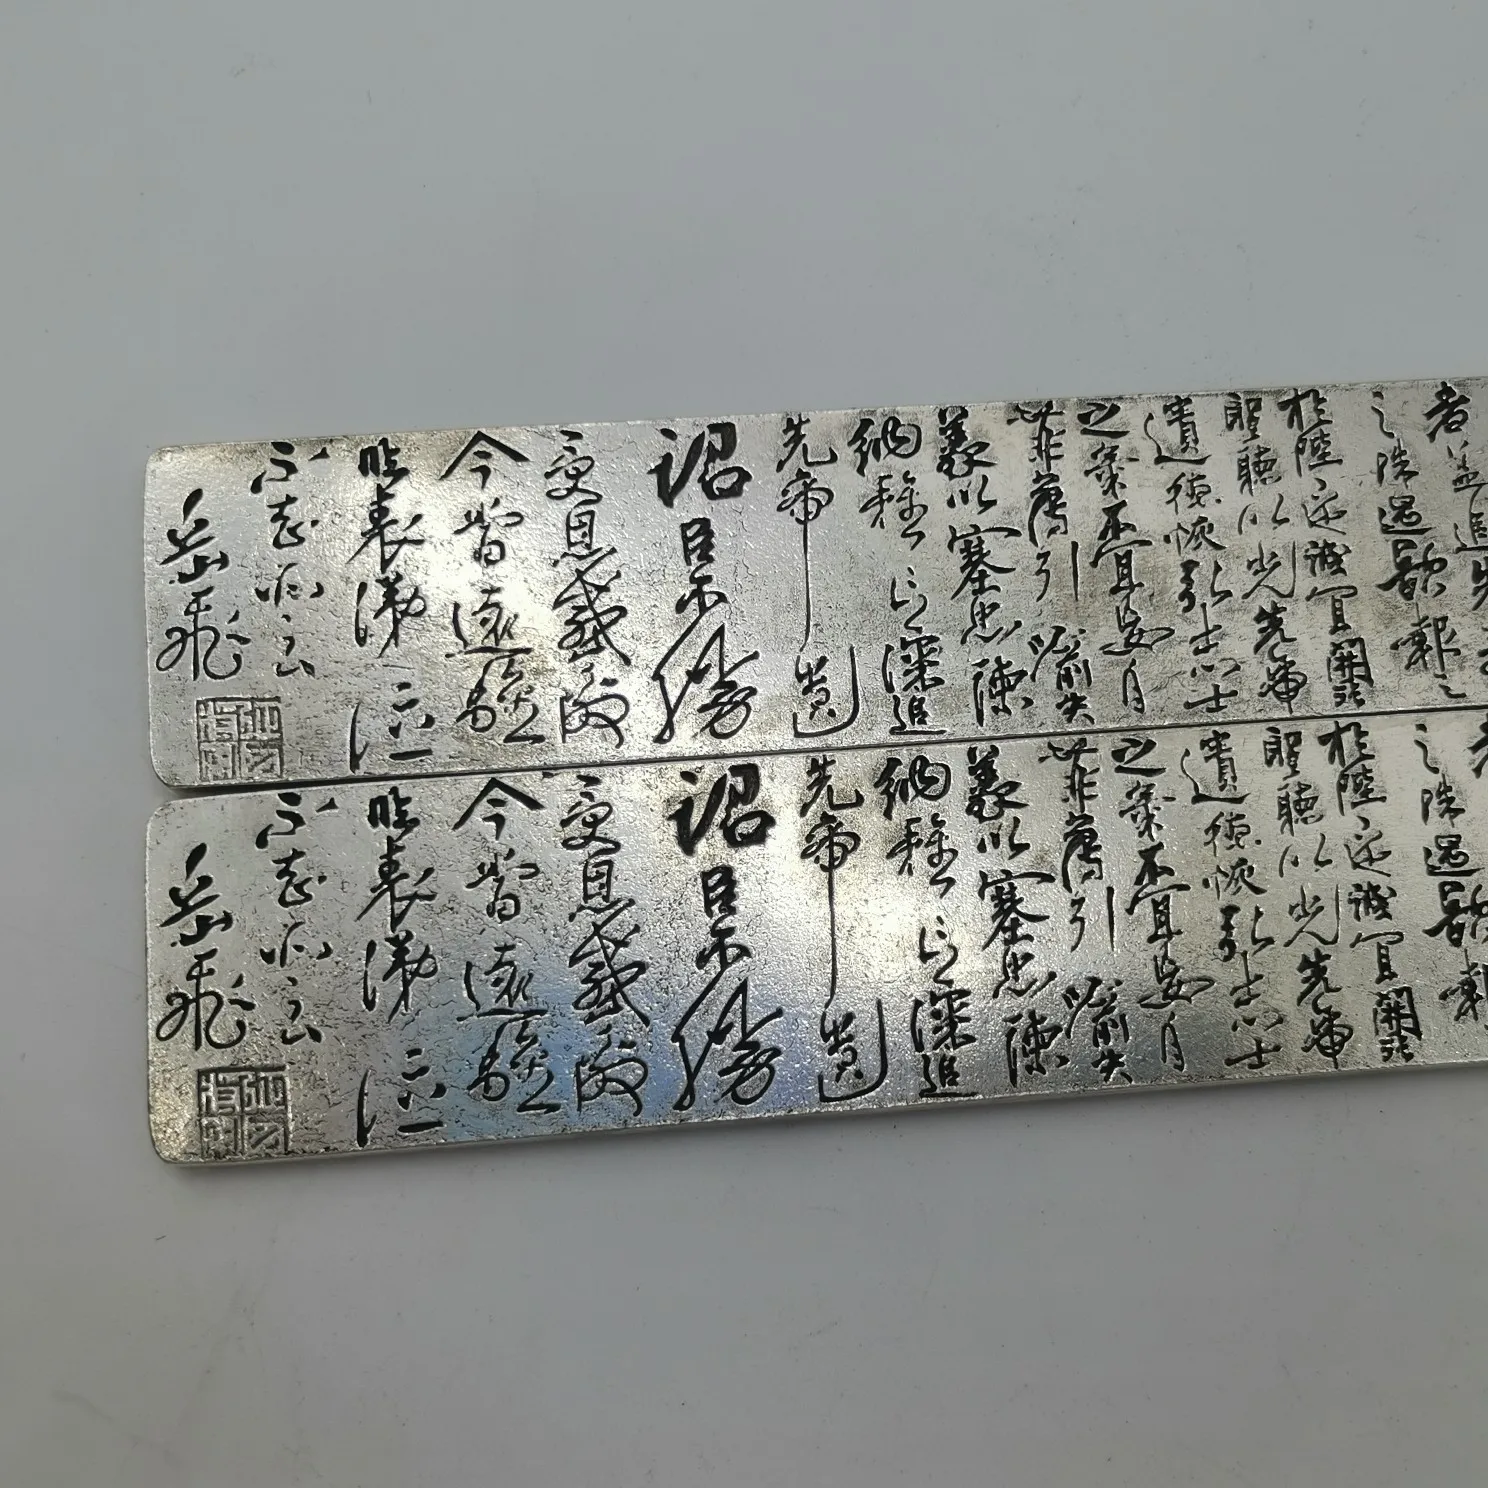 者蓋追先
之殊遇欲報之
於陛下誠宜開張
聖聽以光先帝
遺德恢弘志士
之氣不宜妄自
菲薄引喻失
義以塞忠諫
納雅言深追
先帝遺
詔臣不勝
受恩感激
今當遠離
臨表涕泣
不知所云
岳飛
之殊遇欲報
於陛下誠宜開張
聖聽以光先帝
遺德恢弘志士
之氣不宜妄自
菲薄引喻失
義以塞忠諫
納雅言深追
先帝遺
詔臣不勝
受恩感激
今當遠離
臨表涕泣
不知所云
岳飛